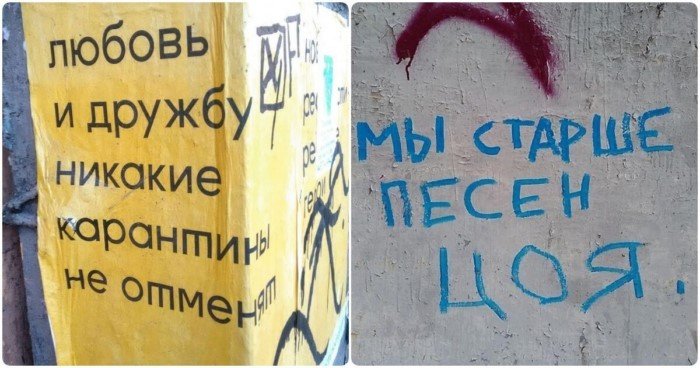 любовь
и дружбу
никакие
карантины
не отменят
мы старше
песен
цоя.